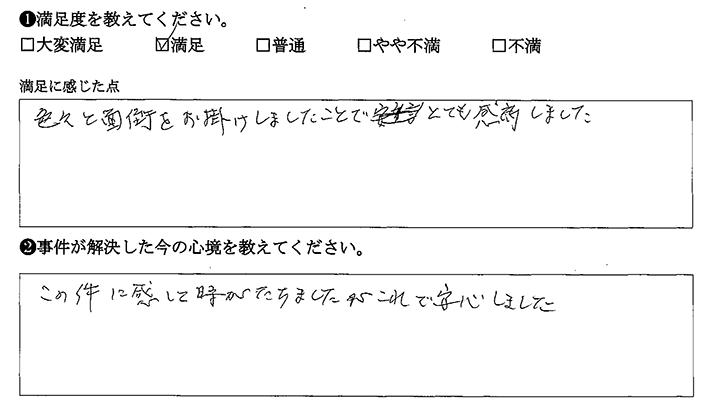 ❶満足度を教えてください。
□大変満足 ☑満足 □普通 □やや不満 □不満
満足に感じた点
色久と面倒をお掛けしましたことでとても感謝しました
❷事件が解決した今の心境を教えてください。
この件に感して時がたちましたがこれで安心しました